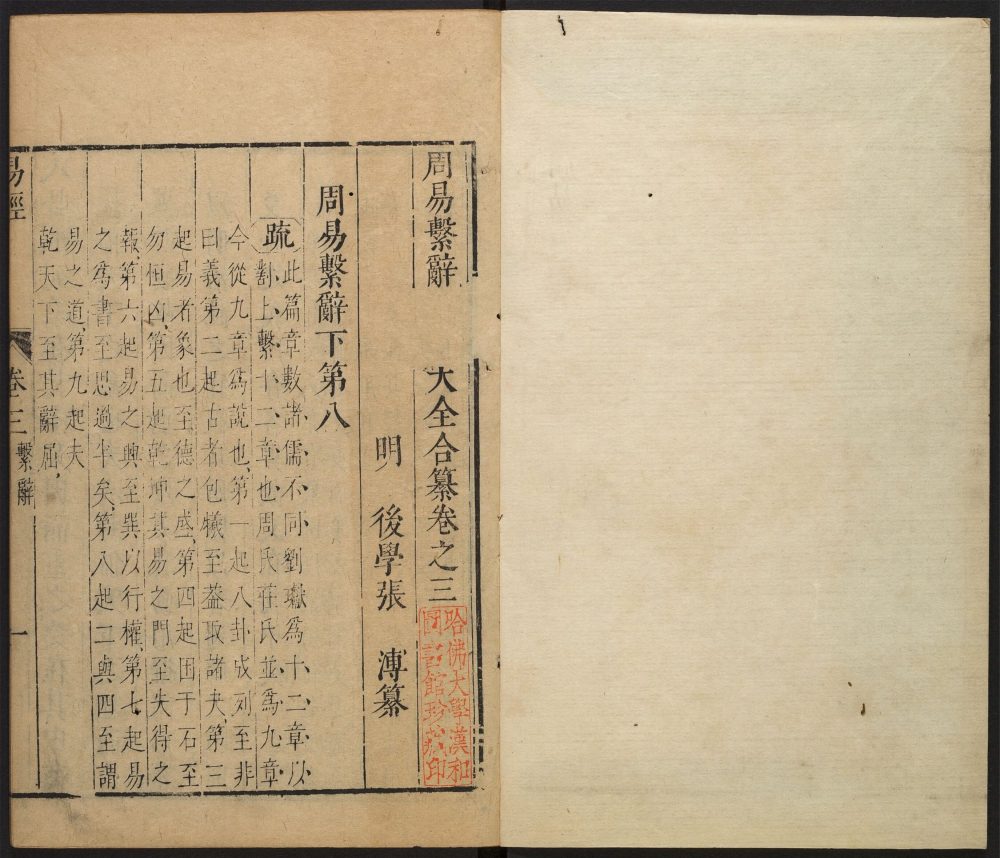 周易繫辭 大全合纂卷之三
哈佛大學漢和
圖書館珍藏印
明 後學張 溥纂
周易繫辭下第八
疏
此篇章數諸儒不同劉瓛為十二章以
對上繫十二章也周氏莊氏並為九章
今從九章為說也第一起八卦成列至非
曰義第二起古者包犧至蓋取諸夬第三
起易者象也至德之盛第四起困于石至
勿恒凶第五起乾坤其易之門至失得之
報第六起易之興至巽以行權第七起易
之為書至思過半矣第八起二與四至謂
易之道第九起夫
乾天下至其辭屈
易經 卷三 繫辭 一